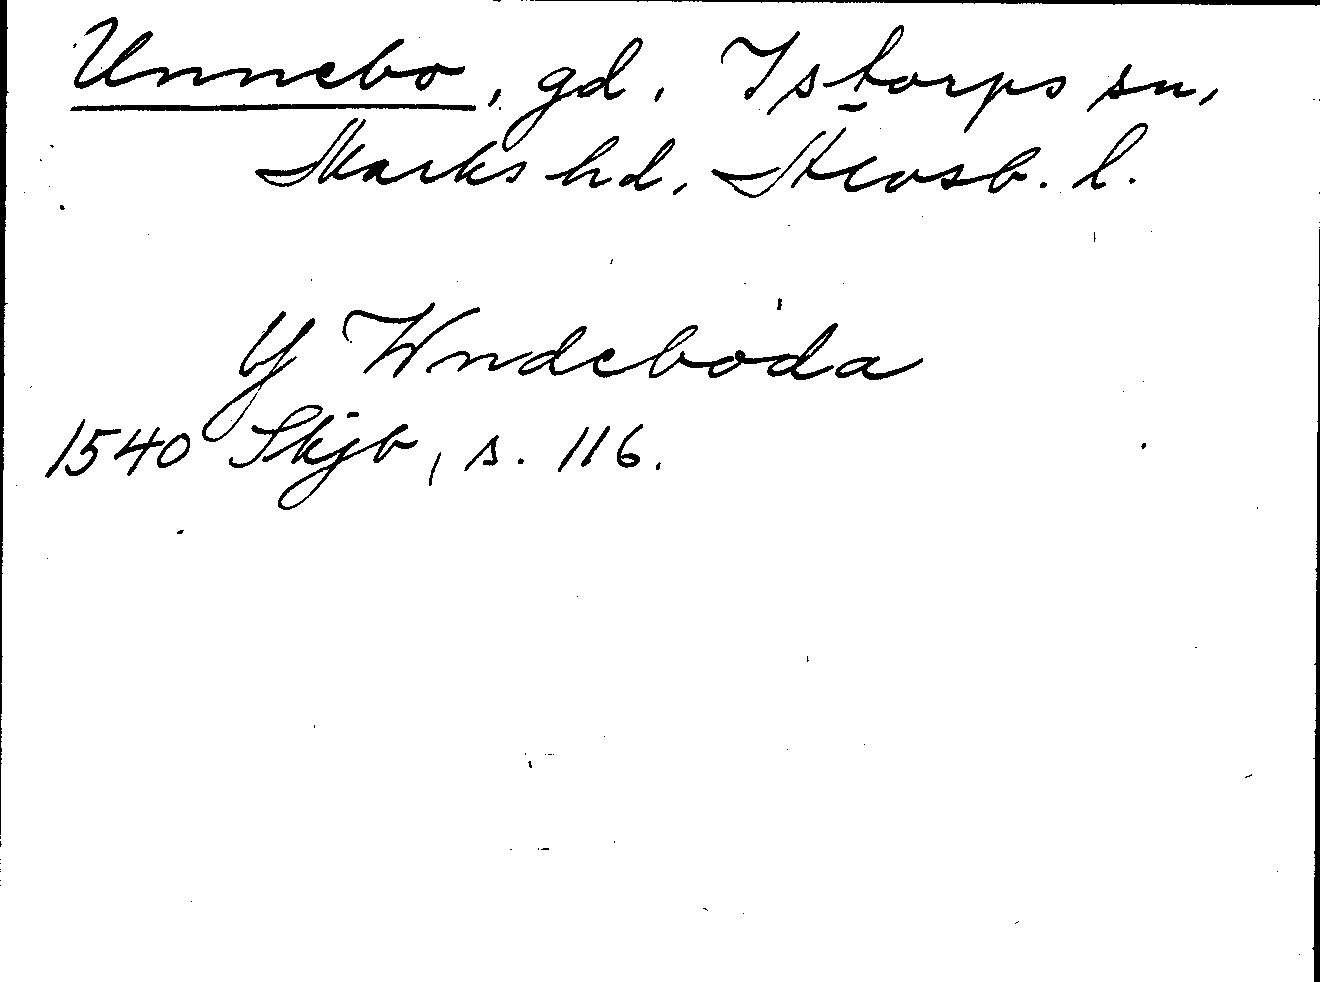 Unnebo, gd, Istorps sn,
Marks hd, Älvsb. l.
Y Wndeboda
1540 Skjb, s. 116.